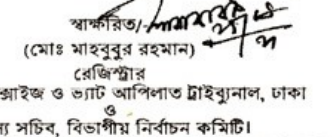 স্বাক্ষরিত/-
(মোঃ মাহবুবুর রহমান)
রেজিস্ট্রার
ও ভ্যাট আপিলাত ট্রাইব্যুনাল, ঢাকা
ও
সচিব, বিভাগীয় নির্বাচন কমিটি।